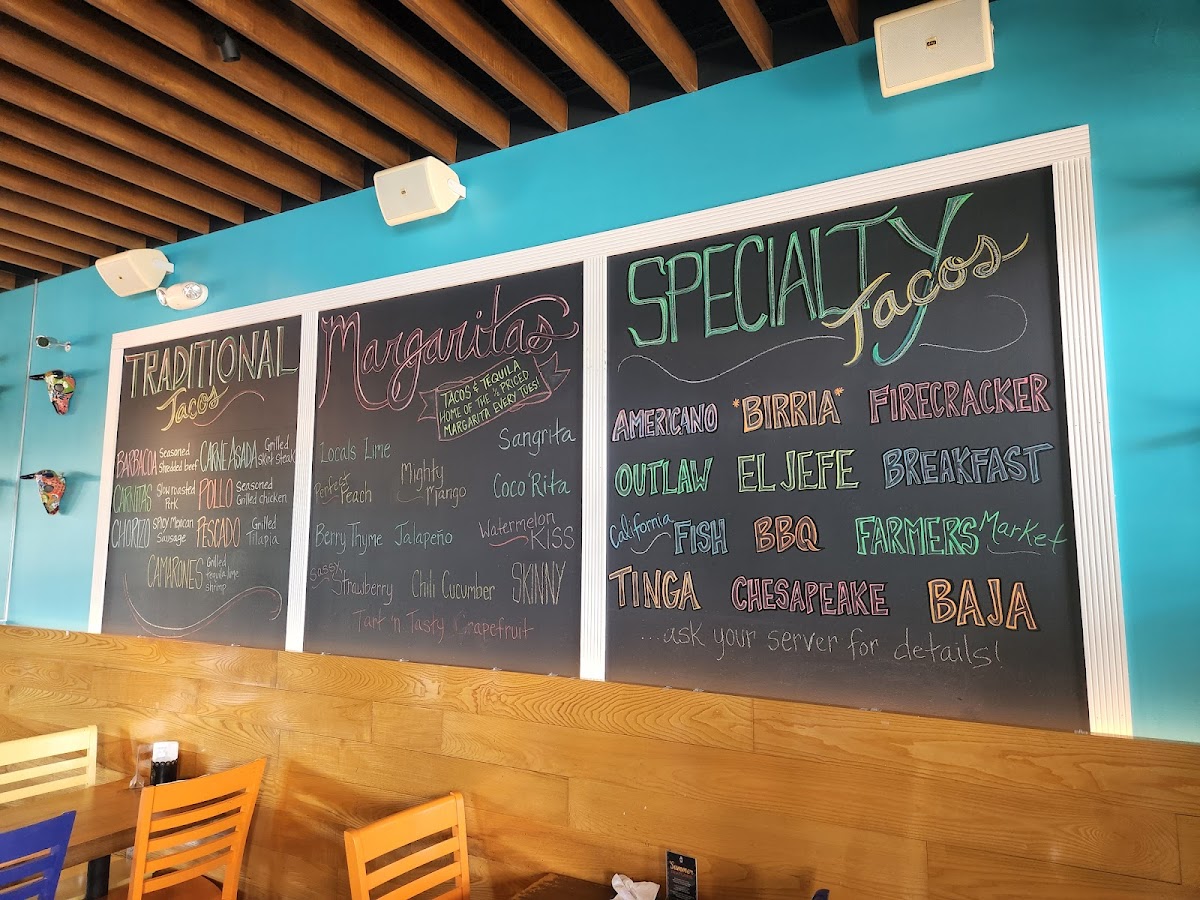 TRADITIONAL
Tacos
BARBACOA Seasoned Shredded beef CARNE ASADA Grilled Skirt steak
CARNITAS Slow roasted Pork POLLO Seasoned Grilled chicken
CHORIZO Spicy Mexican Sausage PESCADO Grilled Tilapia
CAMARONES Grilled tequila lime shrimp
Margaritas
TACOS & TEQUILA
HOME OF THE ½ PRICED
MARGARITA EVERY TUES!
Sangrita
Locals Lime
Perfect Peach Mighty Mango Coco'Rita
Berry Thyme Jalapeño Watermelon KISS
Sassy Strawberry Chili Cucumber SKINNY
Tart 'n Tasty Grapefruit
SPECIALTY
Tacos
AMERICANO *BIRRIA* FIRECRACKER
OUTLAW EL JEFE BREAKFAST
California FISH BBQ FARMERS Market
TINGA CHESAPEAKE BAJA
...ask your server for details!
Summer